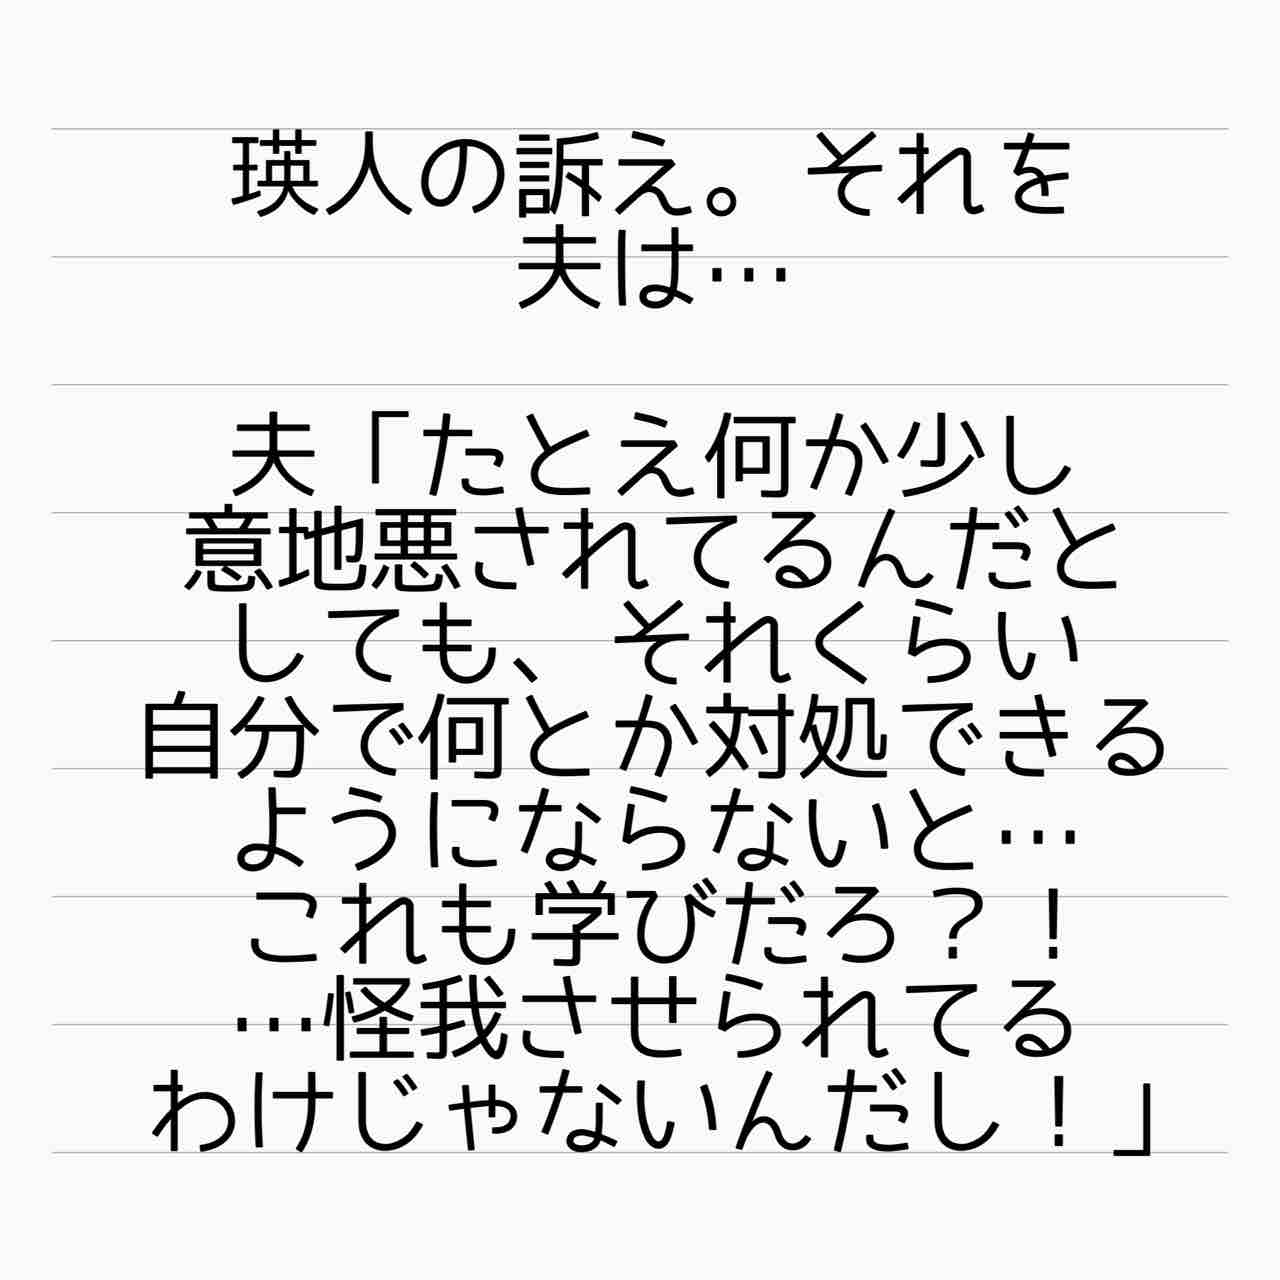 瑛人の訴え。それを
夫は…
夫「たとえ何か少し
意地悪されてるんだと
しても、それくらい
自分で何とか対処できる
ようにならないと…
これも学びだろ？！
…怪我させられてる
わけじゃないんだし！」